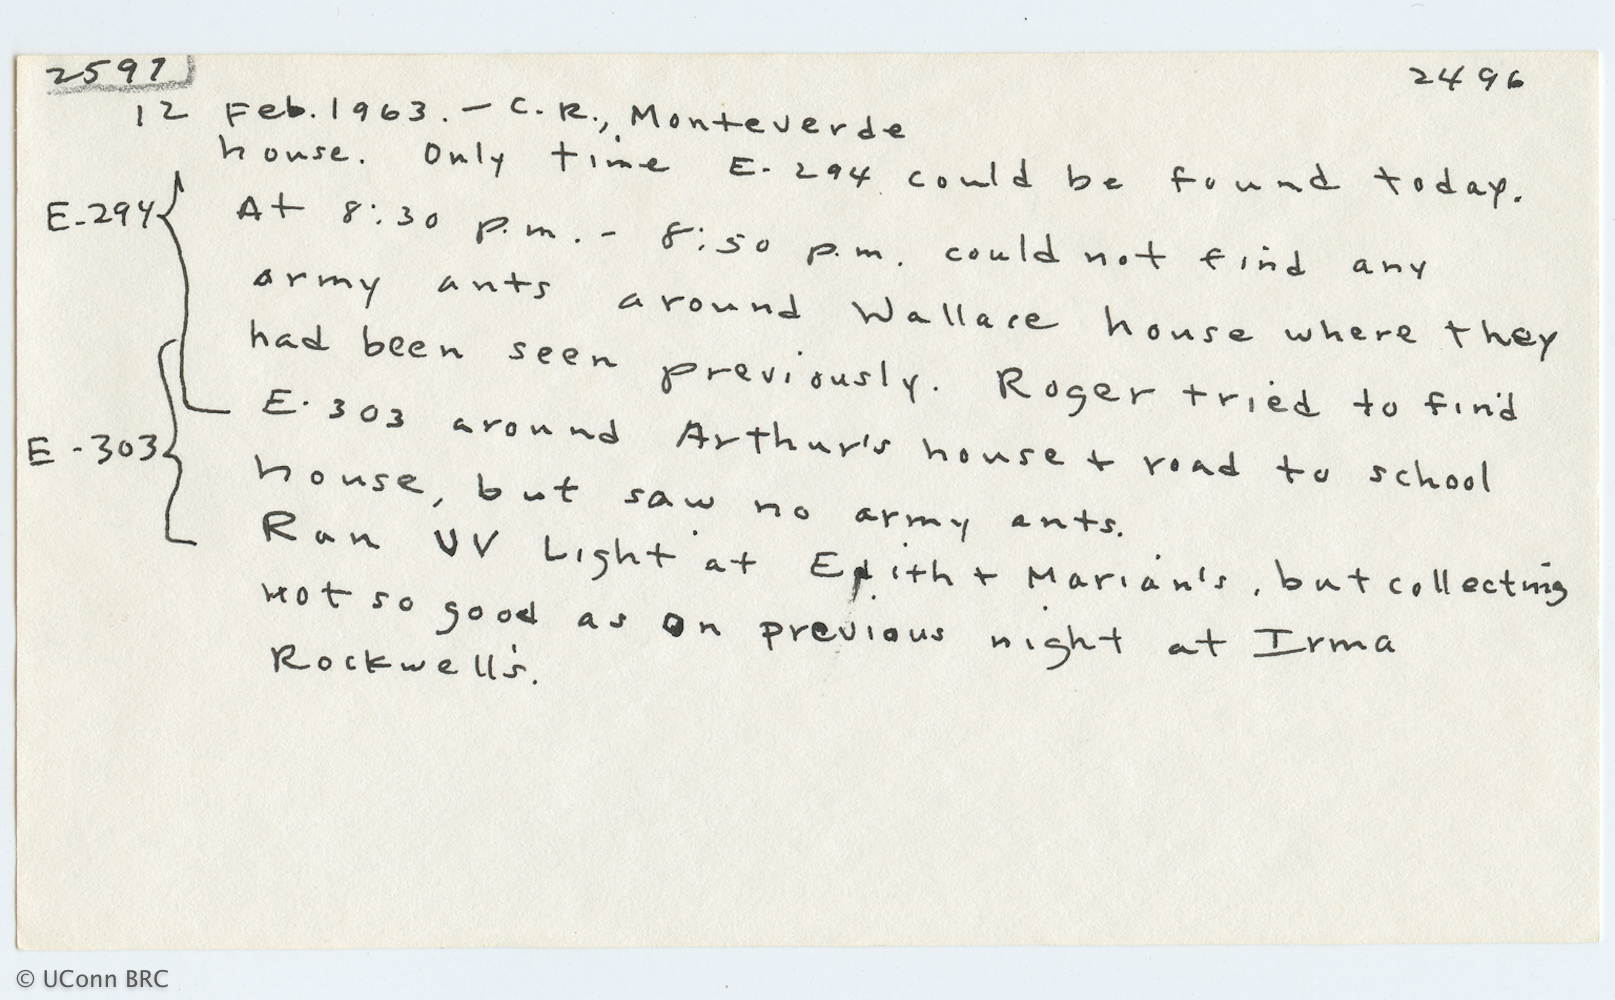 2597
2496
12 Feb. 1963. - C.R., Monteverde
house. Only time E-294 could be found today.
E-294
At 8:30 p.m. - 8:50 p.m. could not find any
army ants around Wallace house where they
had been seen previously. Roger tried to find
E-303 around Arthur's house + road to school
E-303
house, but saw no army ants.
Ran UV Light at Edith + Marian's, but collecting
not so good as on previous night at Irma
Rockwell's.
© UConn BRC